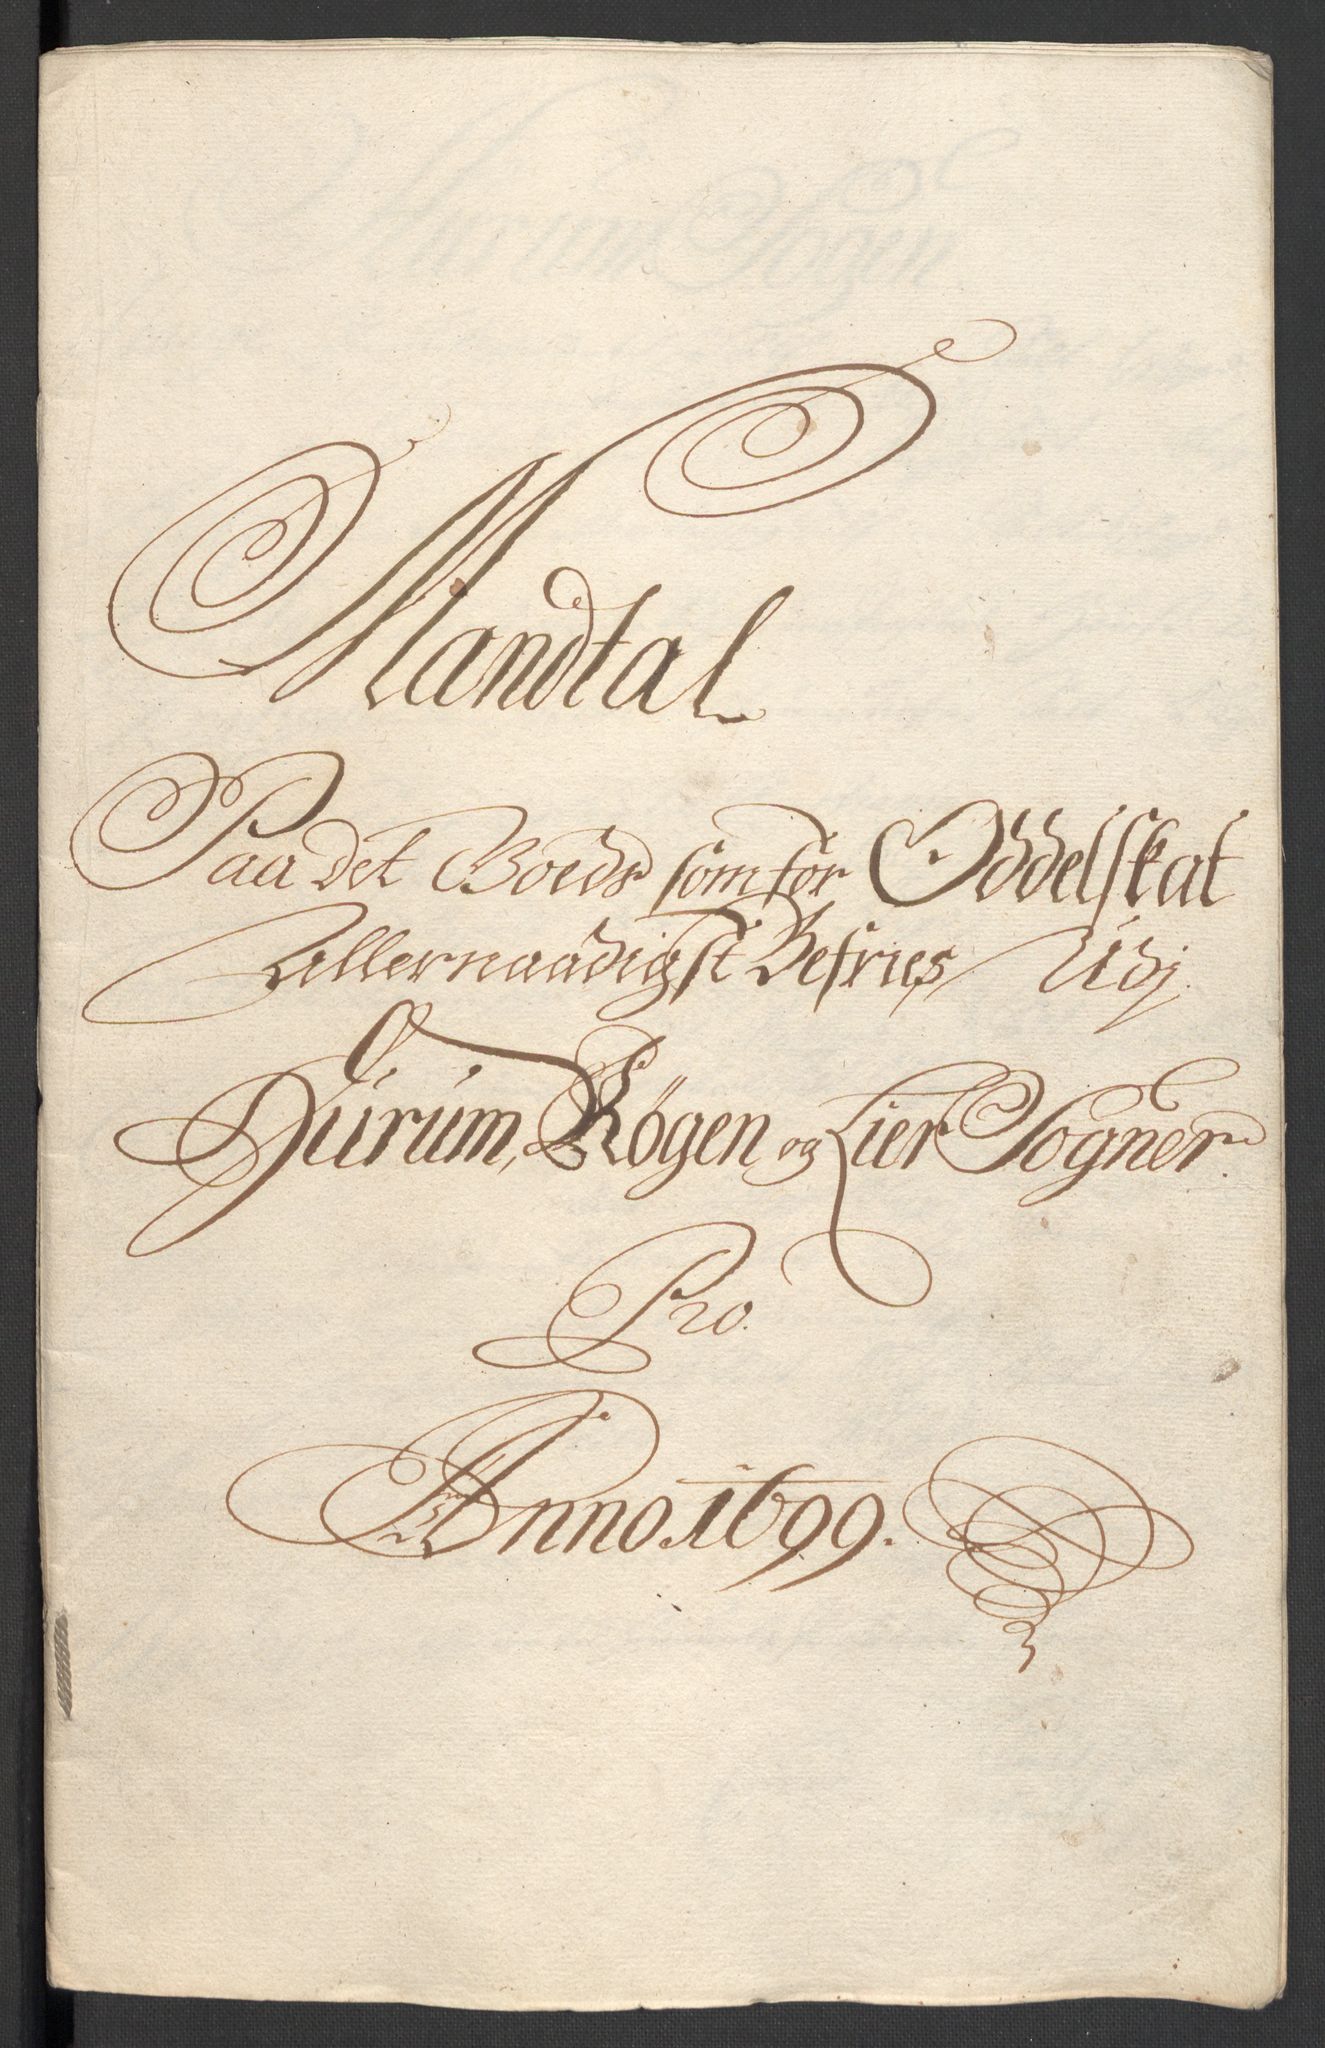 Mandtal
Paa det Boeds som for Oddelskat
Allernaadigst Befries Udj
Hurum, Røgen, og Lier Sogner
Pro.
Anno. 1699.